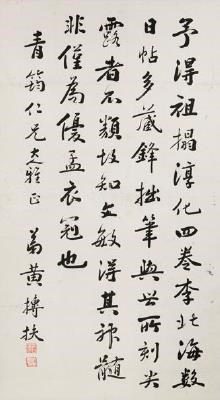 予得祖搨淳化四卷李北海數
日帖多藏鋒拙筆與世所刻尖
露者不類故知文敏得其神髓
非僅為優孟衣冠也
青筠仁兄大雅正
弟黃摶扶